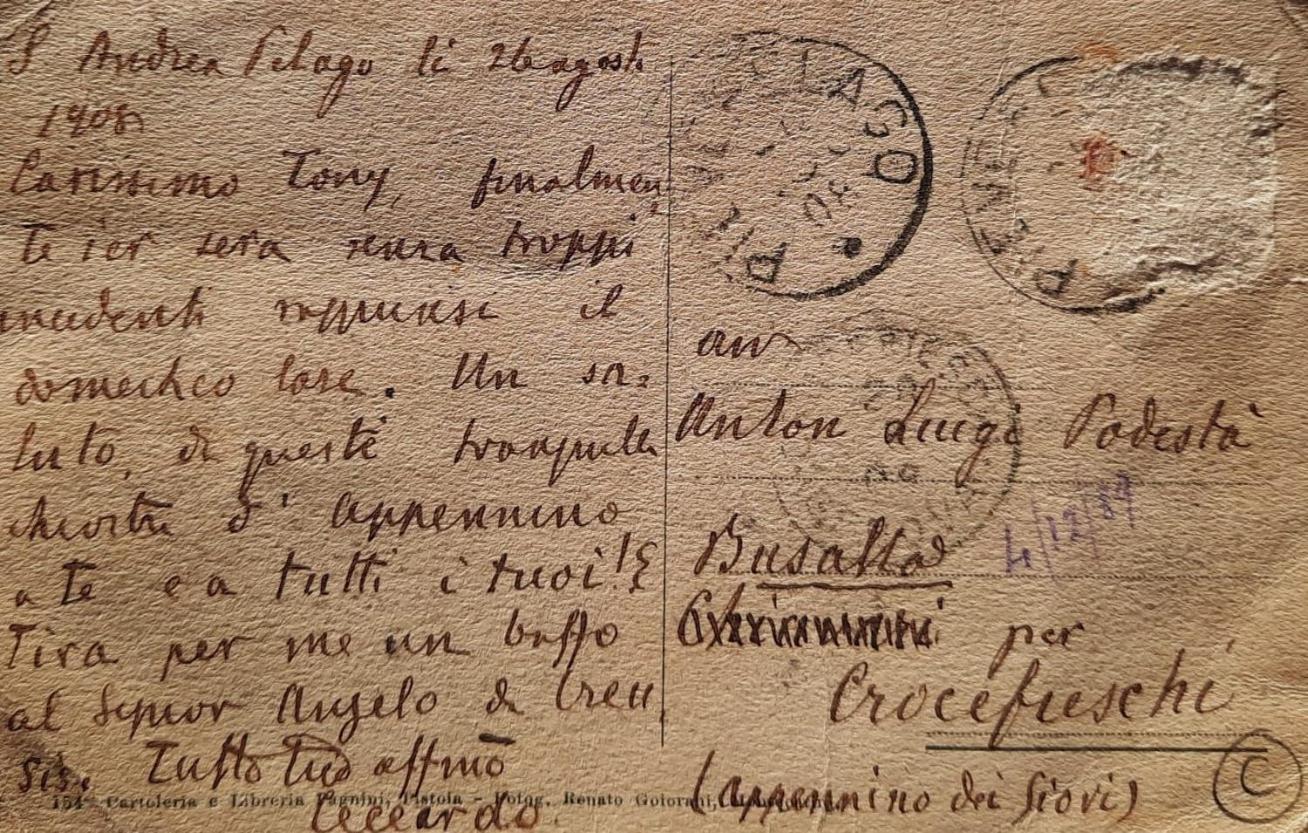 S Andrea Pelago li 26 agosto
1908
Carissimo Tony, finalmen
te ier sera senza troppi
incidenti il
domestico lare. Un sa=
luto, di queste tranquille
chiostre d' appennino
a te e a tutti i tuoi!
Tira per me un baffo
al Signor Angelo di Creu
sis. Tutto tuo affmo
Ceccardo
154 - Cartoleria e Libreria Pagnini, Pistoia - Fotog. Renato Goiorani,
PIEVEPELAGO
08
PIEVE
Anton Luigi Podestà
4/12/89
Busalla
per
Crocefieschi
(appennino dei Giovi)
C